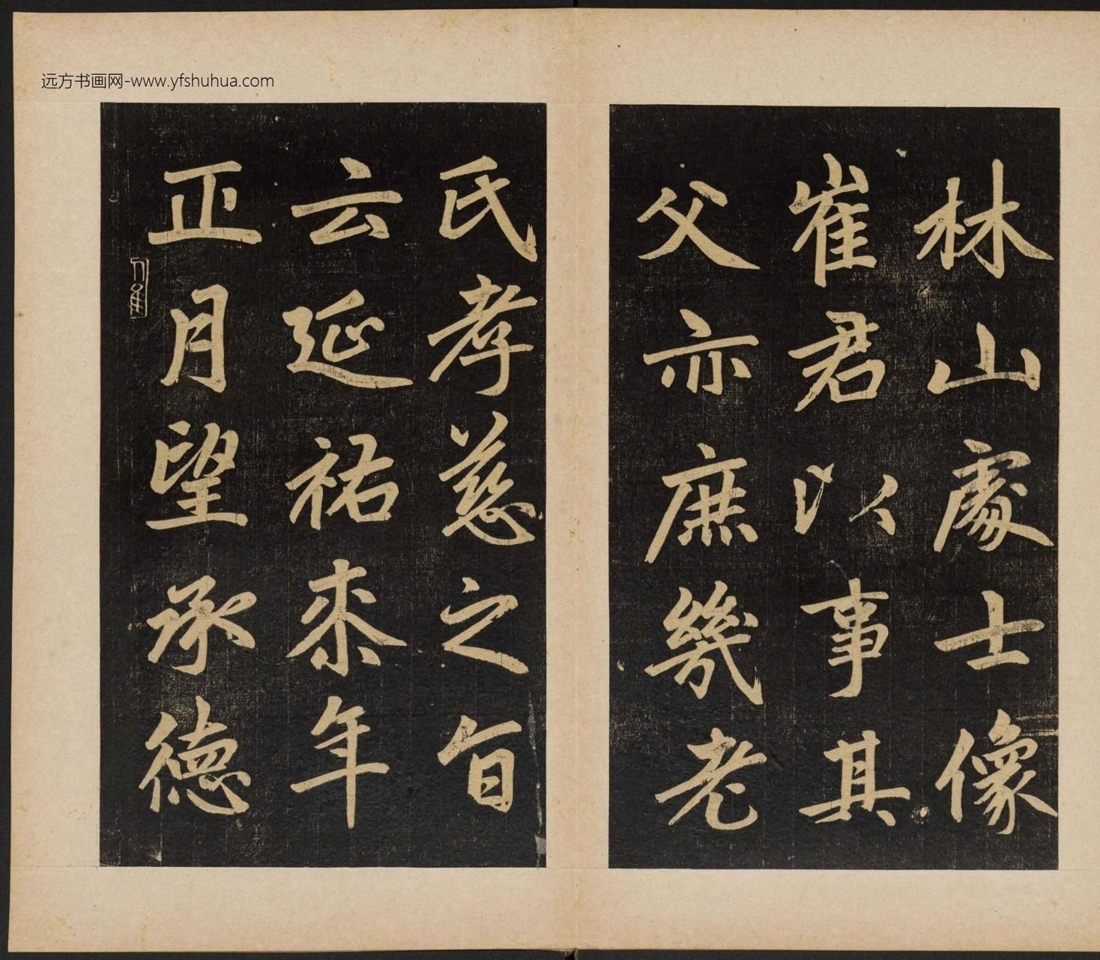 远方书画网-www.yfshuhua.com
林山處士像
崔君以事其
父亦庶幾老
氏孝慈之旨
云延祐来年
正月望承德